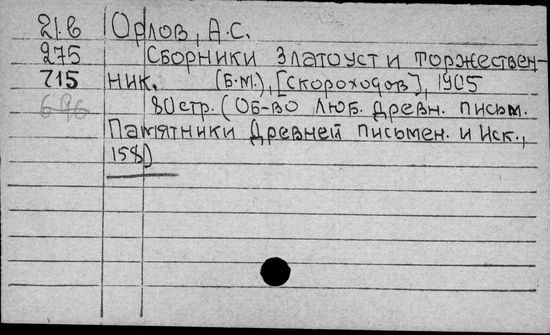 21.6 Орлов, А.С.
275 Сборники Златоуст и Торжествен-
715 ник. (Б.М.), [Скороходов], 1905
696 80 стр. (Об-во люб. древн. письм.
Памятники древней письмен. и иск.,
158)